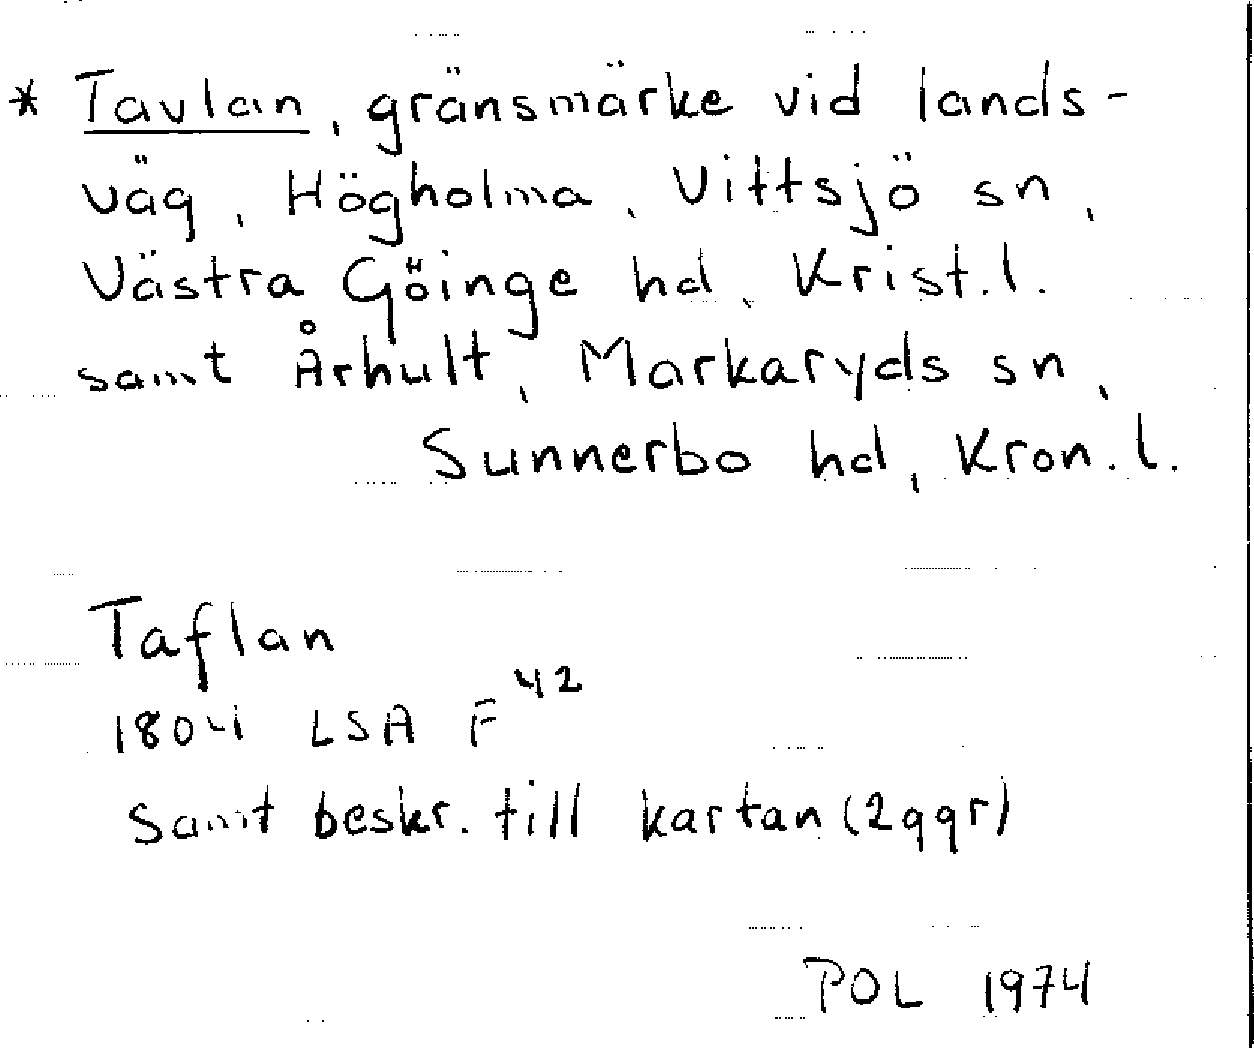 * Tavlan, gränsmärke vid lands-
väg, Högholma, Vittsjö sn,
Västra Göinge hd, Krist.l.
samt Århult, Markaryds sn,
Sunnerbo hd, Kron.l.
Taflan
1804 LSA F 42
samt beskr. till kartan (2ggr)
POL 1974